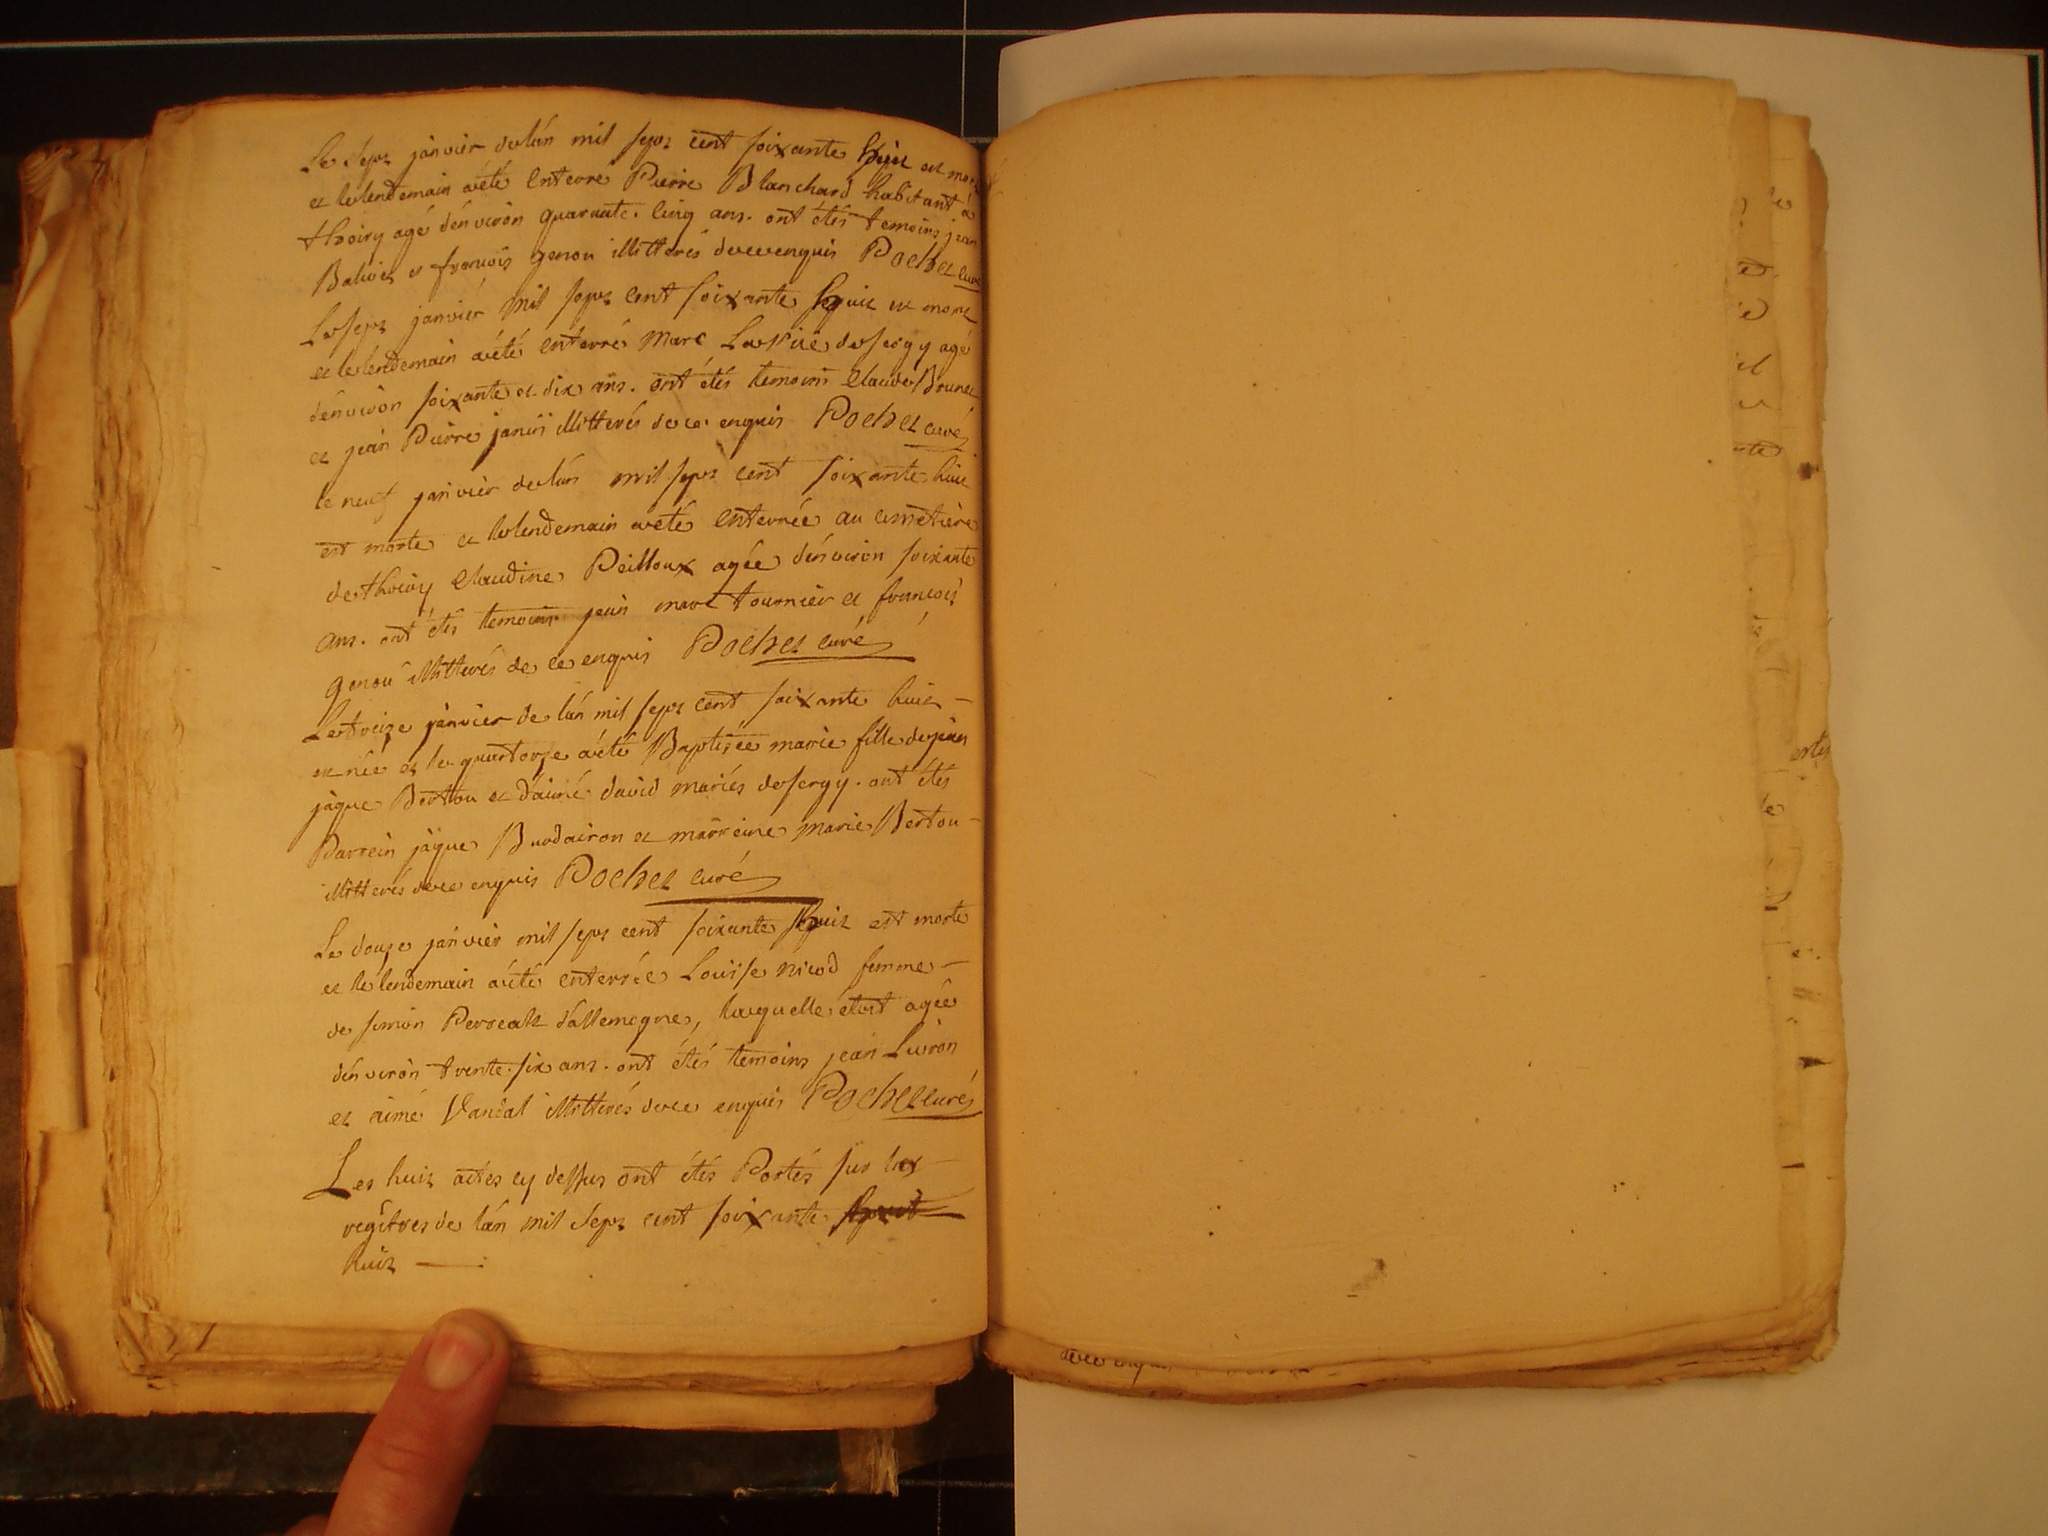 Le sept janvier de lán mil sept cent soixante huit est mort
et le lendemain aété enterré Pierre Blanchard habitant à
thoiry agé dénviron quarante. cinq ans. ont étés temoins jean
et françois genou illitterés de ce enquis Pochet curé
Le sept janvier mil sept cent soixante huit est mort
et le lendemain aété enterré marc de sergy agé
dénviron soixante et dix ans. ont étés temoins Claude Brunet
et jean Pierre janin illitterés de ce enquis Pochet curé
le neuf janvier de lán mil sept cent soixante huit
est morte et le lendemain aété enterrée au cimetière
de thoiry Claudine Peilloux agée dénviron soixante
ans. ont étés temoins jean marc tournier et françois
genou illitterés de ce enquis Pochet curé
Le treize janvier de lán mil sept cent soixante huit –
est née et le quartorze aété Baptisée marie fille de jean
jâque Bertou et dáimé david mariés de sergy. ont étés
Parrein jâque Burdairon et marreine marie Bertou –
illitterés de ce enquis Pochet curé
Le douze janvier mil sept cent soixante huit est morte
et le lendemain aété enterrée Louise nicod femme –
de simon dállemogne, laquelle étoit agée
dénviron trente. six ans. ont étés temoins jean Livron
et aimé Vandal illitterés de ce enquis Pochet curé
Les huit actes cy dessus ont étés Portés sur les
regîtres de lán mil sept cent soixante
huit —